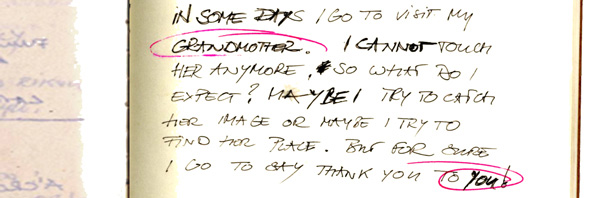 IN SOME DAYS I GO TO VISIT MY
GRANDMOTHER. I CANNOT TOUCH
HER ANYMORE, SO WHAT DO I
EXPECT? MAYBE I TRY TO CATCH
HER IMAGE OR MAYBE I TRY TO
FIND HER PLACE. BUT FOR SURE
I GO TO SAY THANK YOU TO YOU!